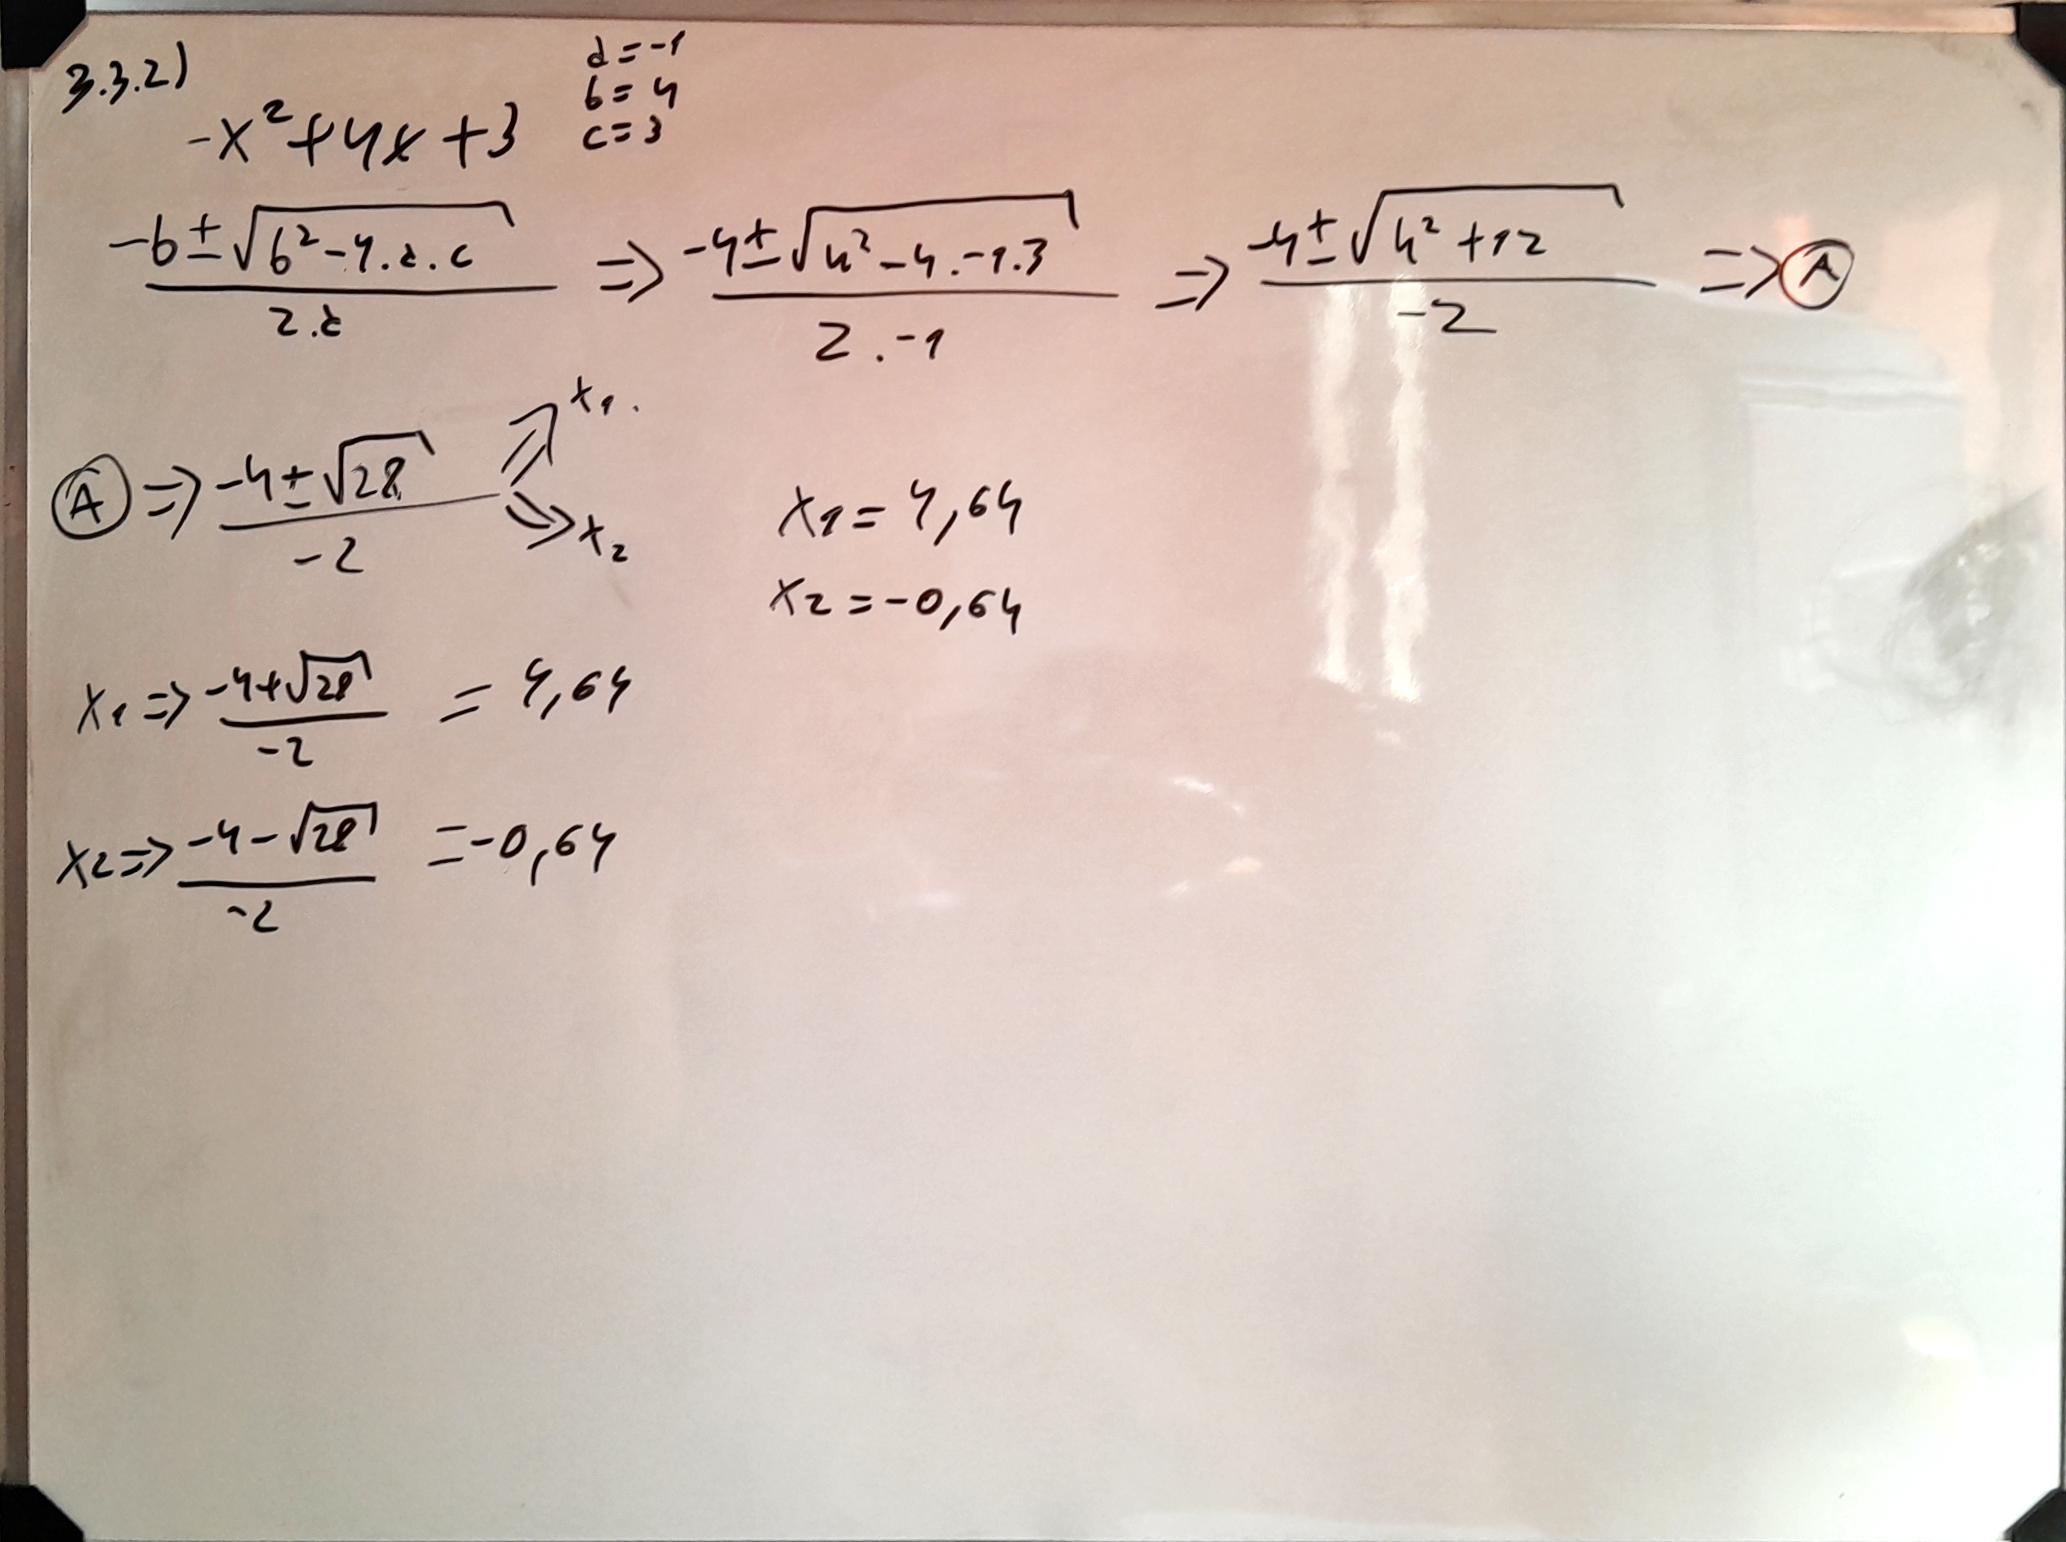 3.3.2)
-x²+4x+3
a=-1
b=4
c=3
-b±√(b²-4.a.c) / 2.a => -4±√(4²-4.-1.3) / 2.-1 => -4±√(4²+12) / -2 => A
A => -4±√28 / -2 => x1.
=> x2
x1=4,64
x2=-0,64
x1 => -4+√28 / -2 = 4,64
x2 => -4-√28 / -2 = -0,64